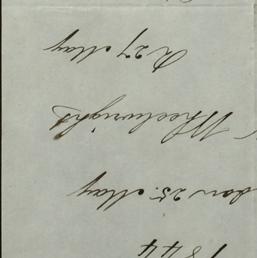 1844
don 25 May
Wheelwright
27 May